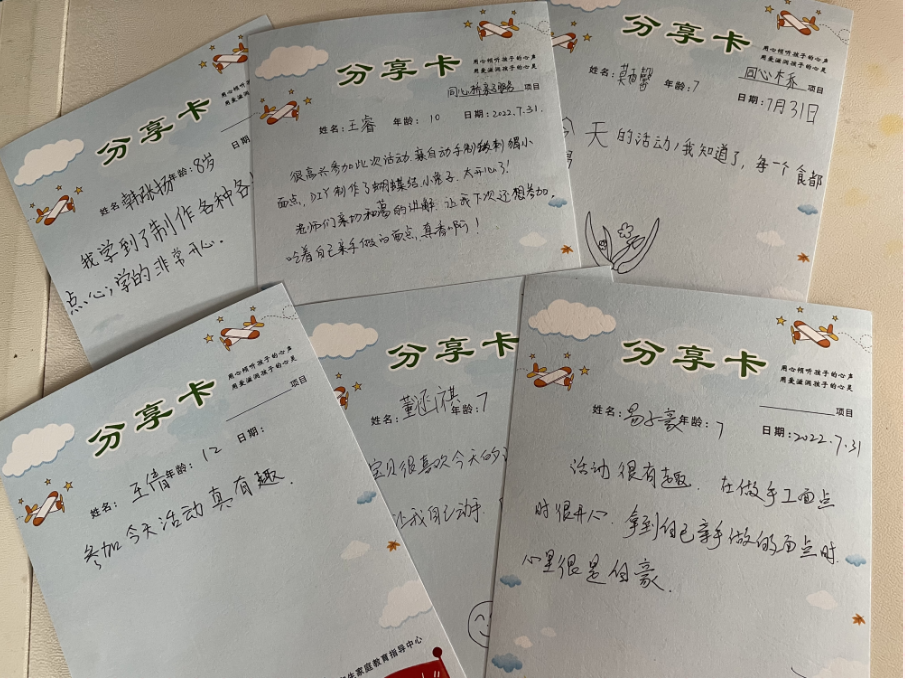 分享卡
姓名:韩张扬年龄:8岁
日期
我学到了制作各种各
点心,学的非常开心.
分享卡
用心倾听孩子的心声
用爱滋润孩子的心灵
项目
姓名:王睿 年龄:10 日期:2022.7.31.
很高兴参加此次活动.亲自动手制作刺猬小
面点,DIY制作了蝴蝶结,小兔子.太开心了!
老师们亲切和蔼的讲解.让我下次还想参加.
吃着自己亲手做的面点,真香啊!
分享卡
用心倾听孩子的心声
用爱滋润孩子的心灵
同心 项目
姓名: 年龄:7
日期:7月31日
天的活动,我知道了,每一个食都
分享卡
用心倾听孩子的心声
用爱滋润孩子的心灵
项目
姓名:王倩年龄:12 日期:
参加今天活动真有趣.
家庭教育指导中心
分享卡
姓名:董 祺年龄:7
宝贝很喜欢今天的
让我自己动手
分享卡
用心倾听孩子的心声
用爱滋润孩子的心灵
项目
姓名:易子豪年龄:7 日期:2022.7.31
活动很有趣.在做手工面点
时很开心.拿到自己亲手做的面点时.
心里很是自豪.